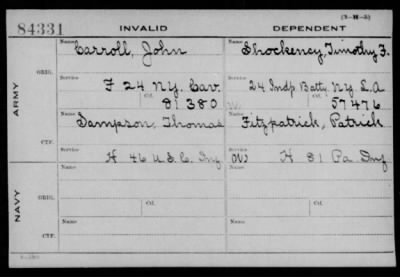 (3-H-5)
84331 INVALID DEPENDENT
Name Carroll, John Name Shockency, Timothy F.
ARMY
ORIG.
Service F 24 N.Y. Cav. Service 24 Indp Batty N.Y. L.A
Ctf. 81380 W Ctf. 57476
Name Sampson, Thomas Name Fitzpatrick, Patrick
CTF.
Service H 46 U.S.C. Inf Service (W) H 81 Pa Inf
NAVY
Name Name
ORIG.
Service Service
Ctf. Ctf.
Name Name
CTF.
Service Service